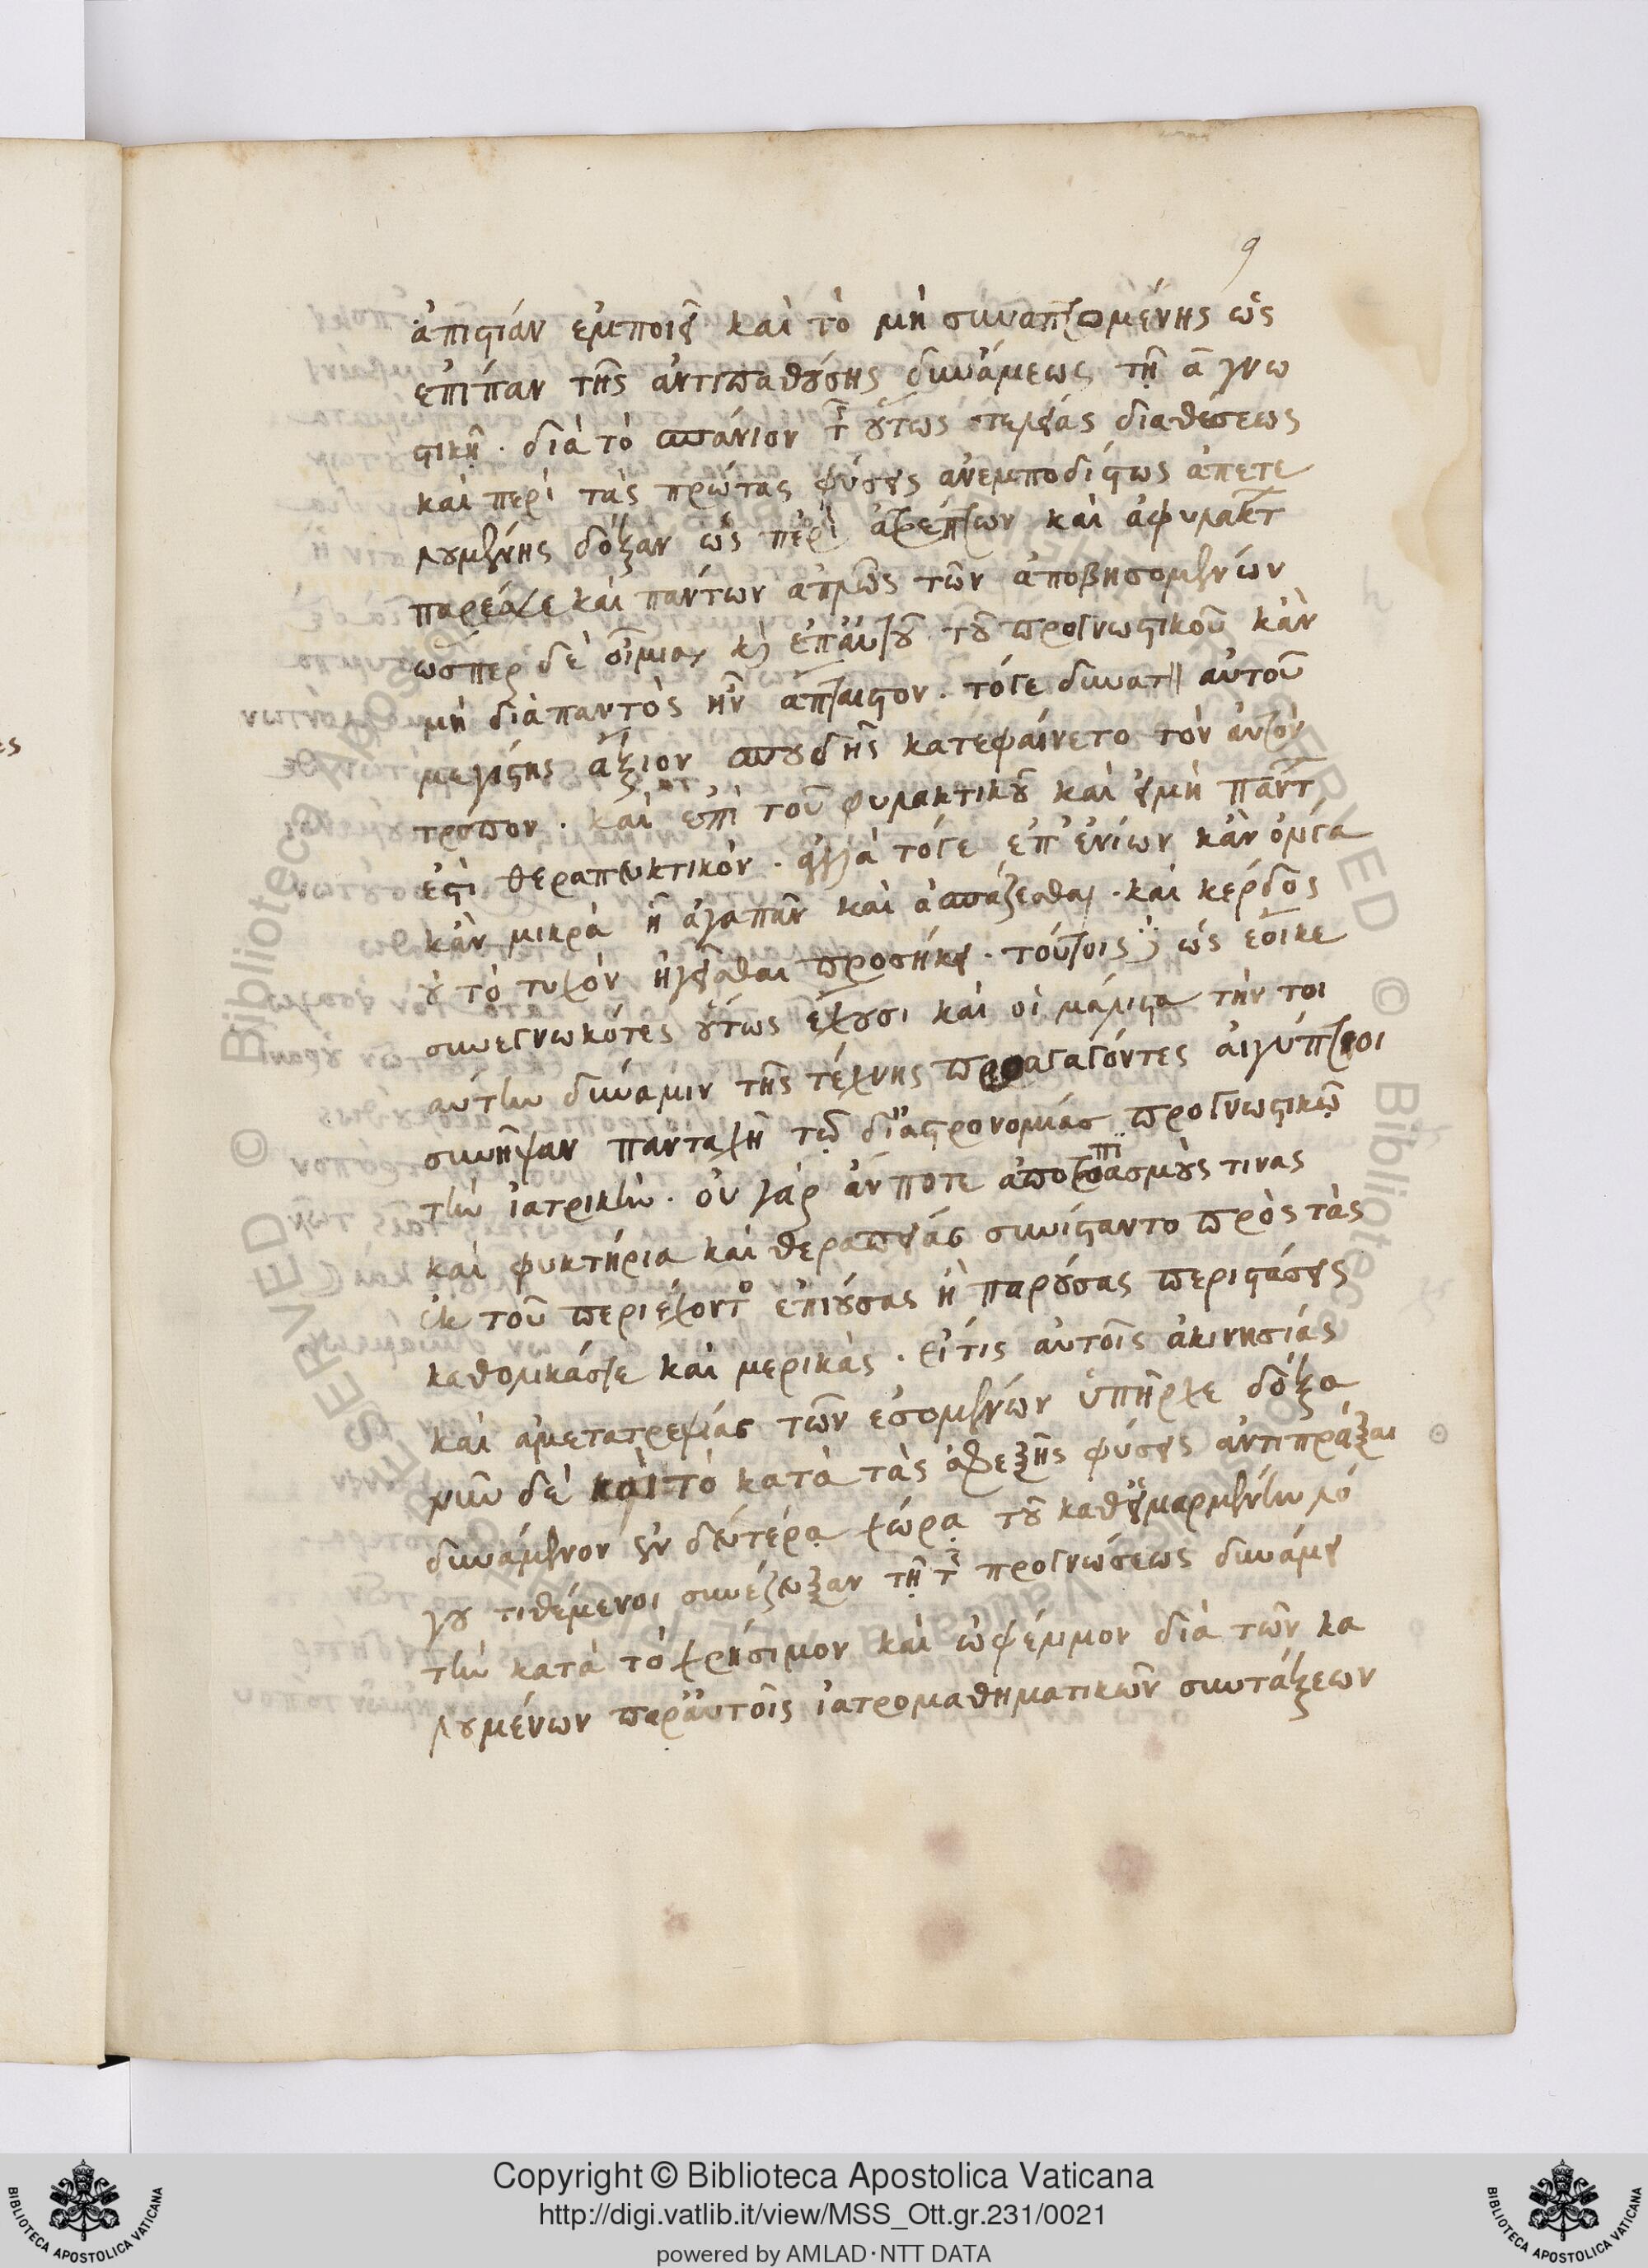 9
ἀπιστίαν ἐμποιεῖ καὶ τὸ μὴ συναπτομένης ὡς
ἐπίπαν τῆς ἀντιπαθούσης δυνάμεως τῇ
στικῇ. διὰ τὸ σπάνιον τ οὕτως διαθέσεως
καὶ περὶ τὰς πρώτας φύσεις ἀνεμποδίστως ἀπετε
λουμένης δόξαν ὡς περὶ ἀτρέπτων καὶ ἀφυλάκτ
παρέσχε καὶ πάντων ἁπλῶς τῶν ἀποβησομένων
ὥσπερ δὲ οἶμαι κ ἐπ' αὐτοῦ τοῦ προγνωστικοῦ κἂν
μὴ διὰ παντὸς ἦν ἄπταιστον. τόγε δυνατ αὐτοῦ
μεγίστης ἄξιον σπουδῆς κατεφαίνετο τὸν αὐτὸν
τρόπον. καὶ ἐπὶ τοῦ φυλακτικοῦ καὶ εἰ μὴ πάντ
ἐστὶ θεραπευκτικόν. ἀλλὰ τόγε ἐπ' ἐνίων κἂν ὀλίγα
κἂν μικρὰ ἦ ἀγαπᾶν καὶ ἀσπάζεσθαι. καὶ κέρδος
οὐ τὸ τυχὸν ἡγεῖσθαι προσήκει. τούτοις ὡς ἔοικε
συνεγνωκότες οὕτως ἔχουσι καὶ οἱ μάλιστα τὴν τοι
αύτην δύναμιν τῆς τέχνης προαγαγόντες αἰγύπτιοι
συνῆψαν πανταχῆ τῷ δι' ἀστρονομίας προγνωστικῷ
τὴν ἰατρικὴν. οὐ γὰρ ἄν ποτε ἀποτροπιασμούς τινας
καὶ φυκτήρια καὶ θεραπείας συνίσταντο πρὸς τὰς
ἐκ τοῦ περιέχοντο ἐπιούσας ἢ παρούσας περιστάσεις
καθολικάς τε καὶ μερικὰς. εἴ τις αὐτοῖς ἀκινησίας
καὶ ἀμετατρεψίας τῶν ἐσομένων ὑπῆρχε δόξα
νῦν δὲ καὶ τὸ κατὰ τὰς ἐφεξῆς φύσεις ἀντιπρᾶξαι
δυνάμενον ἐν δευτέρᾳ χώρᾳ τοῦ καθ' εἱμαρμένην λό
γου τιθέμενοι συνέζευξαν τῇ τ προγνώσεως δυνάμει
τὴν κατὰ τὸ χρήσιμον καὶ ὠφέλιμον διὰ τῶν κα
λουμένων παρ' αὐτοῖς ἰατρομαθηματικῶν συντάξεων
Copyright © Biblioteca Apostolica Vaticana
http://digi.vatlib.it/view/MSS_Ott.gr.231/0021
powered by AMLAD·NTT DATA
BIBLIOTECA APOSTOLICA VATICANA
BIBLIOTECA APOSTOLICA VATICANA